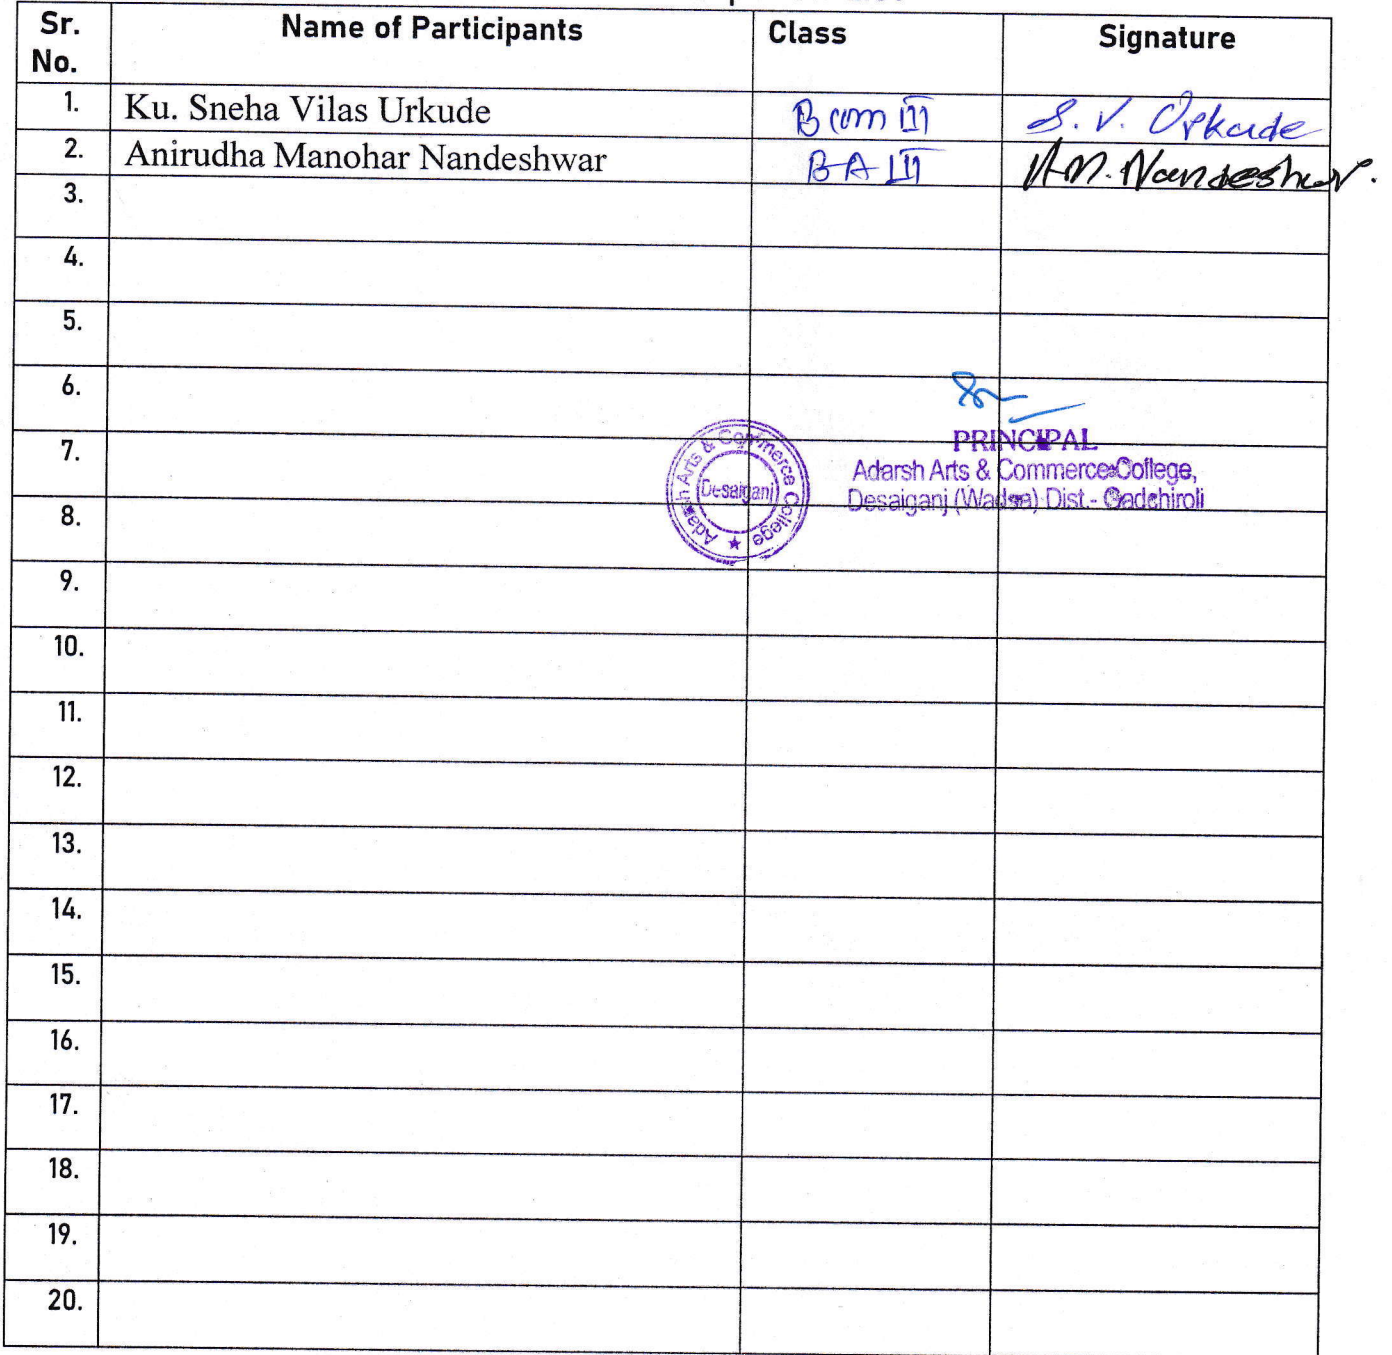 Sr. No. Name of Participants Class Signature
1. Ku. Sneha Vilas Urkude B com III S. V. Urkude
2. Anirudha Manohar Nandeshwar BA III A.M. Nandeshwar.
3.
4.
5.
6.
7.
8.
PRINCIPAL
Adarsh Arts & Commerce College,
Desaiganj (Wadsa) Dist.- Gadchiroli
Adarsh Arts & Commerce College
Desaiganj
9.
10.
11.
12.
13.
14.
15.
16.
17.
18.
19.
20.